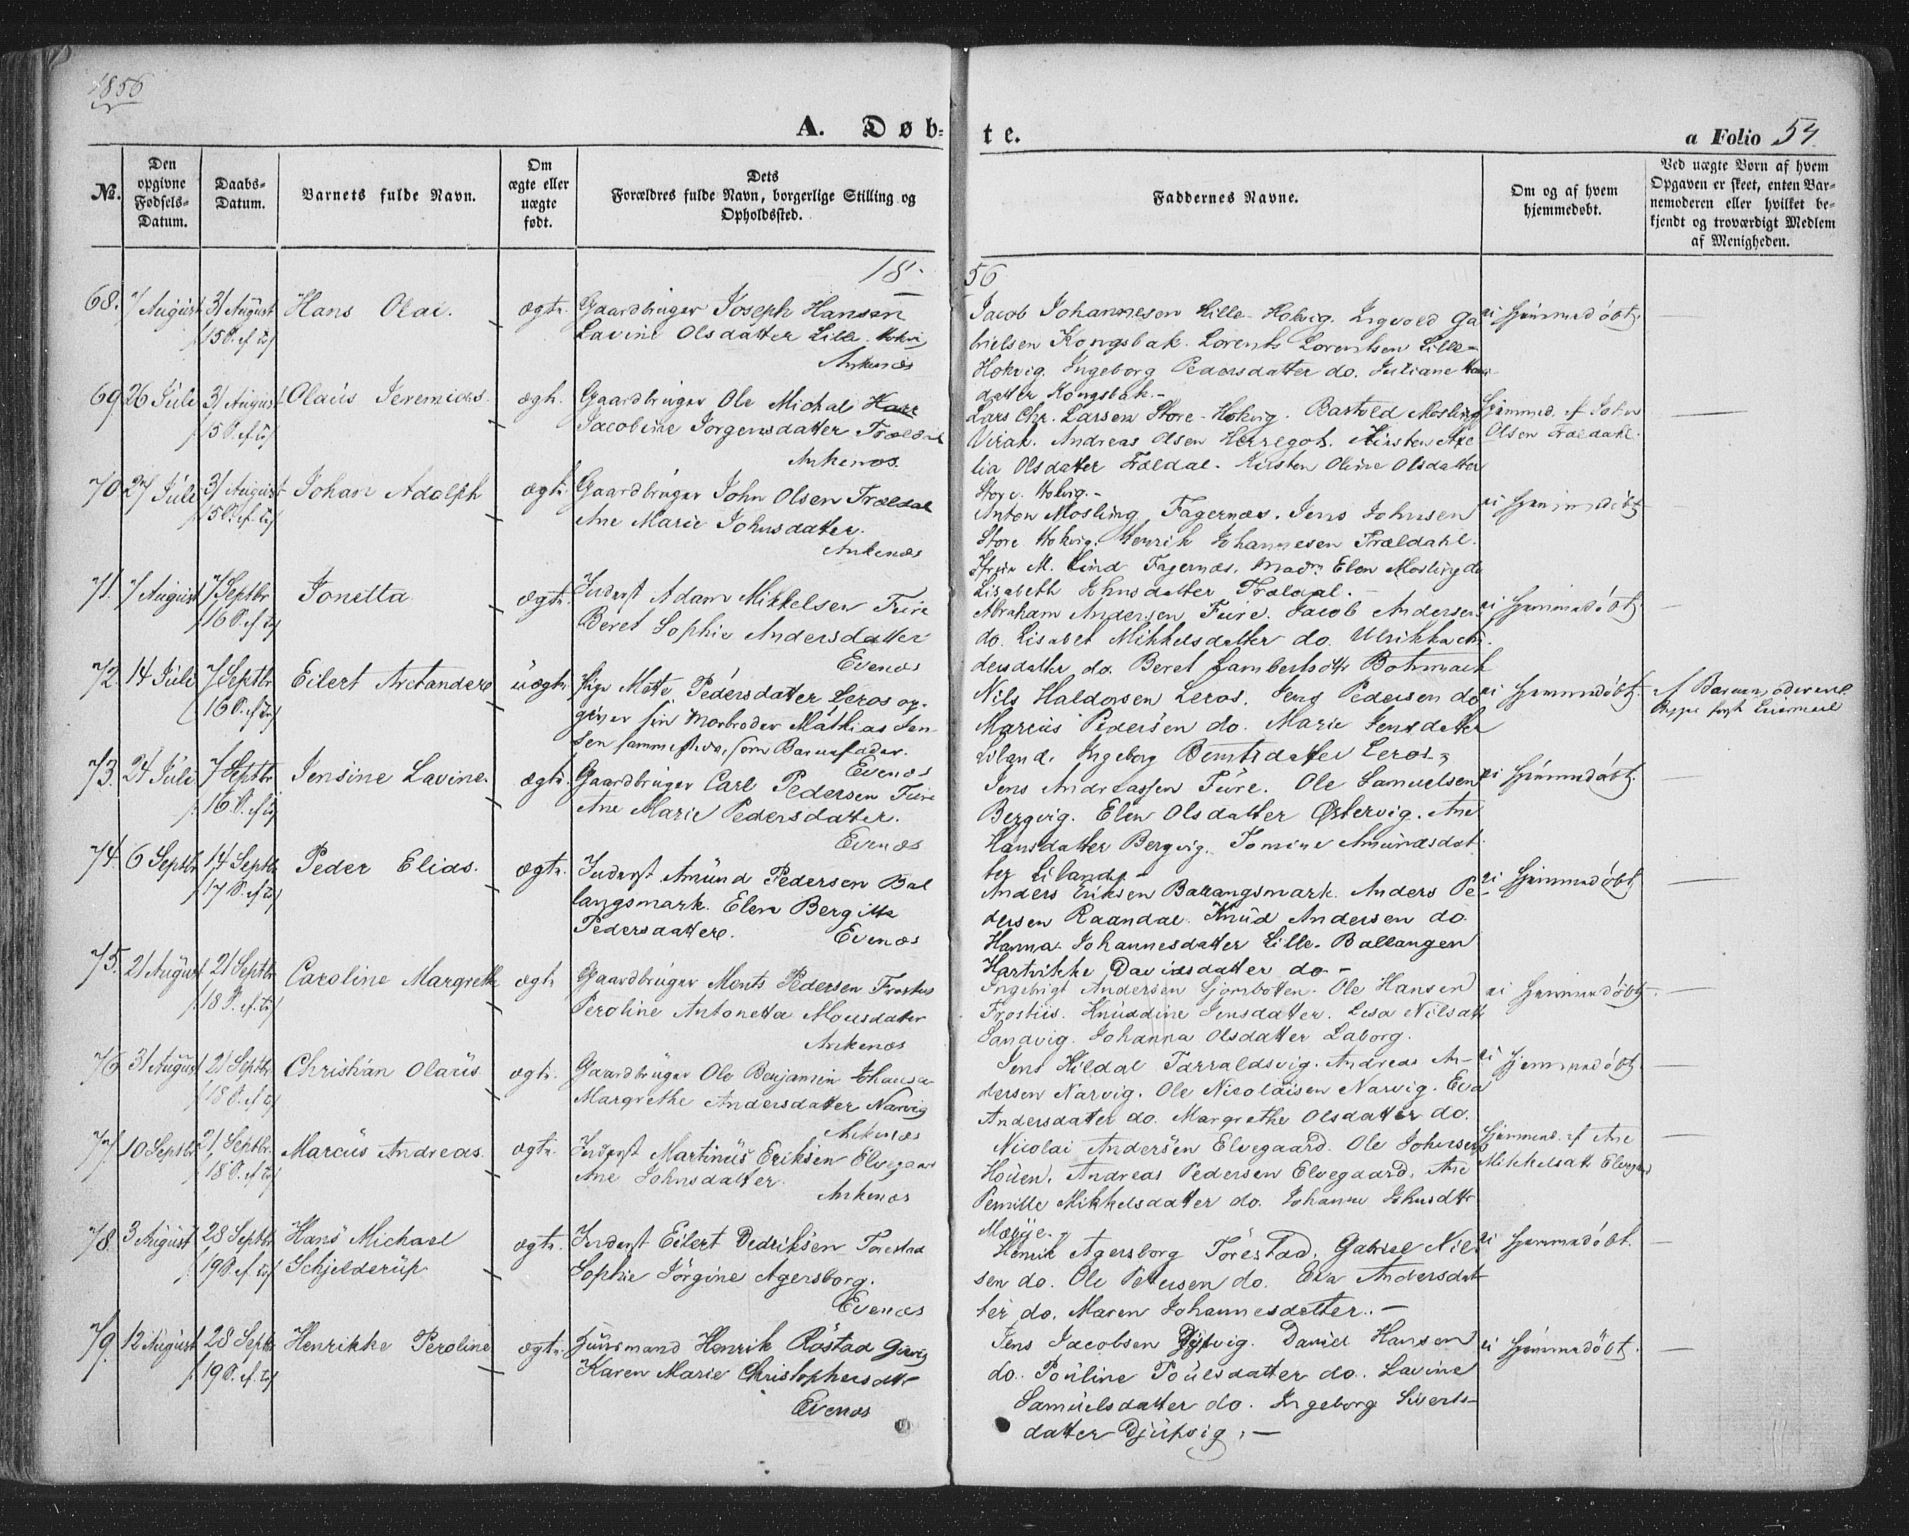 1856
A. Døb=
te.
a Folio 54.
№.
Den opgivne Fødsels-Datum.
Daabs-Datum.
Barnets fulde Navn.
Om ægte eller uægte født.
Dets Forældres fulde Navn, borgerlige Stilling og Opholdssted.
Faddernes Navne.
Om og af hvem hjemmedøbt.
Ved uægte Børn af hvem Opgaven er skeet, enten Barnemoderen eller hvilket bekjendt og troværdigt Medlem af Menigheden.
18
56
68. 7 August 31 August Hans Olai. ægte. Gaardbruger Joseph Hansen
15 S. ef. tr. Lavine Olsdatter Lille
Ankenæs
Jacob Johannesen Lille Hokvig. Ingvold Ga
brielsen Kongsbak. Lorents Lorentsen Lille
Hokvig. Ingeborg Pedersdatter do. Juliane
datter Kongsbak.
ei hjemmedøbt
69 26 Juli 31 August Olaus Jeremias. ægte. Gaardbruger Ole Michal
15 S. ef. tr. Jacobine Jørgensdatter Trældal
Ankenæs
Lars Chr. Larsen Store Hokvig. Bartold Mosling
Virak. Andreas Olsen Herregot.
lia Olsdatter Trældal. Kirsten Oline Olsdatter
Store Hokvig.
Hjemmed. af John
Olsen Trældahl.
70 27 Juli 31 August Johan Adolph ægte Gaardbruger John Olsen Trældal
15 S. ef. tr. Ane Marie Johnsdatter.
Ankenæs
Anton Mosling Fagernæs. Jens Johnsen
Store Hokvig. Henrik Johannesen Trældahl.
M. Lind Fagernæs. Mad. Elen Mosling do
Lisabeth Johnsdatter Trældal.
ei hjemmedøbt
71. 7 August 7 Septbr Jonetta ægte. Inderst Adam Mikkelsen Fure
16 S. ef. tr. Beret Sophie Andersdatter
Evenæs
Abraham Andersen Fure. Jacob Andersen
do. Lisabet Mikkelsdatter do. Ulrikka An
dersdatter do. Beret Lambertsdtr Botnmark
ei hjemmedøbt
72. 14 Juli 7 Septbr Eilert Arctander uægte. Pige Mette Pedersdatter Leros op-
16 S. ef. tr. giver sin Morbroder Mathias Jen-
sen sammesteds, som Barnefader.
Evenæs
Nils Haldorsen Leros. Jens Pedersen do
Marcus Pedersen do. Marie Jensdatter
Liland. Ingeborg Berntsdatter Leros
ei hjemmedøbt
af Barnemoderen
73. 24 Juli 7 Septbr Jensine Lavine. ægte. Gaardbruger Carl Pedersen Fure
16 S. ef. tr. Ane Marie Pedersdatter.
Evenæs
Jens Andreassen Fure. Ole Samuelsen
Bergvig. Elen Olsdatter Østervig. Ane
Hansdatter Bergvig. Tomine Amundsdat
ter Liland.
ei hjemmedøbt.
74. 6 Septbr 14 Septbr Peder Elias. ægte. Inderst Amund Pedersen Bal
17 S. ef. tr. langsmark. Elen Bergitte
Pedersdatter. Evenæs
Anders Eriksen Ballangsmark. Anders Pe
dersen Raandal. Knud Andersen do.
Hanna Johannesdatter Lille-Ballangen
Hartvikke Davidsdatter do.
ei hjemmedøbt
75. 21 August 21 Septbr Caroline Margrethe ægte Gaardbruger Ments Pedersen
18 S. ef. tr. Peroline Antonetta Monsdatter
Ankenæs
Ingebrigt Andersen Sjombotten. Ole Hansen
Frostiis. Knuddine Jensdatter. Lisa Nilsdtr
Sandvig. Johanna Olsdatter Laborg.
ei hjemmedøbt
76 31 August 21 Septbr Christian Olaus ægte. Gaardbruger Ole Benjamin
18 S. ef. tr. Margrethe Andersdatter Narvig
Ankenæs
Jens Hildal Tarraldsvig. Andreas An-
dersen Narvig. Ole Nicolaisen Narvig. Eva
Andersdatter do. Margrethe Olsdatter do.
ei hjemmedøbt
77. 10 Septbr. 21 Septbr. Marcus Andreas. ægte. Inderst Martinus Eriksen Elvegaard
18 S. ef. tr. Ane Johnsdatter
Ankenæs
Nicolai Andersen Elvegaard. Ole Johnsen
Houen. Andreas Pedersen Elvegaard. Ane
Pernille Mikkelsdatter do. Johanne Johnsdtr
Hjemmed. af Ane
Mikkelsdtr Elvegaard
78. 3 August 28 Septbr Hans Michael ægte. Inderst Eilert Dedriksen Torestad
19 S. ef. tr. Schjelderup Sophie Jørgine Agersborg.
Evenæs
Henrik Agersborg Torestad. Gabriel Nil
sen do. Ole Petersen do. Eva Andersdat
ter do. Maren Johannesdatter.
ei hjemmedøbt.
79. 12 August 28 Septbr Henrikke Peroline ægte. Huusmand Henrik Røstad
19 S. ef. tr. Karen Marie Christophersdtr
Evenæs
Jens Jacobsen Djupvig. Daniel Hansen
do. Pouline Poulsdatter do. Lavine
Samuelsdatter do. Ingeborg Siverts-
datter Djupvig.
ei hjemmedøbt